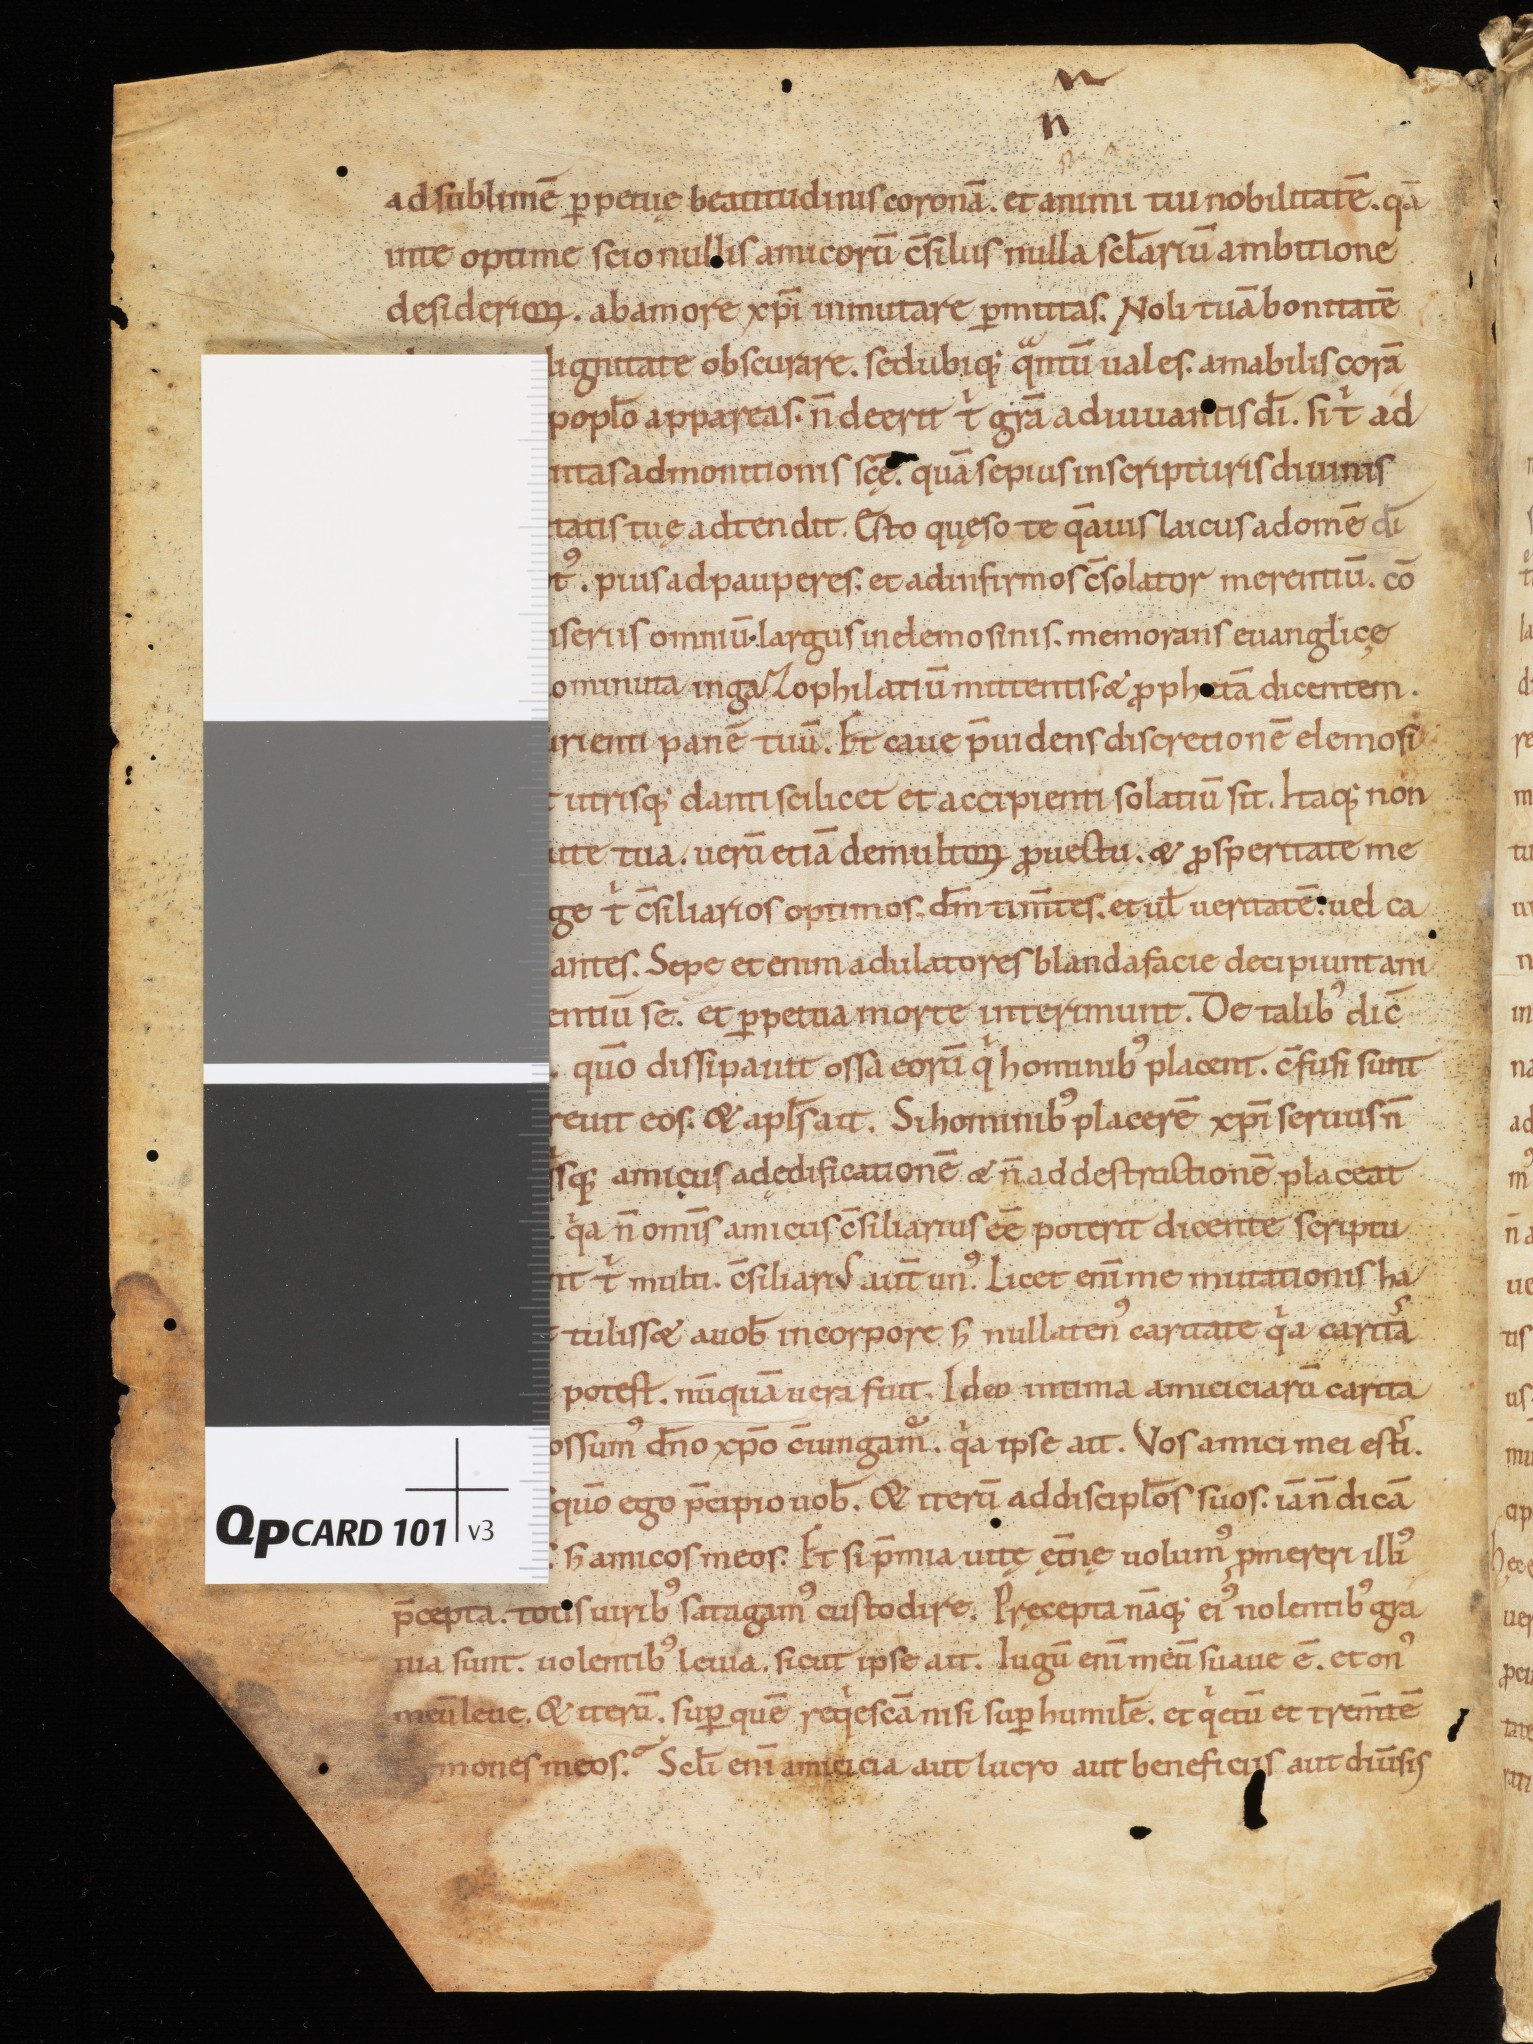 n
n
ad sublimē ꝑpetuę beatitudinis coronā. et animi tui nobilitatē. quā
inte optime scio nullis amicorū c̄siliis nulla sctarıū ambitione
desiderioꝝ. ab amore xp̄i inmutare ꝑmittas. Noli tuā bonitatē
obscurare. sed ubiqꝫ qͣntū uales. amabilis corā
poplo appareas. n̄ deerit tⁱ gr̄a adiuuantis dī. si tⁱ ad
admonitionis sc̄ę. quā sepius in scripturis diuinis
tuę adtendit. Esto quęso te qͣ̄uis laicus ad omē dī
. pius ad pauperes. et ad infirmos c̄solator merentiū. cō
omniū. largus in elemosinis. memorans euanglicę
minuta in gazophilatiū mittentis. & ꝓphetā dicentem.
panē tuū. Et caue p̄uidens discretionē elemosi
utrisqꝫ danti scilicet et accipienti solatiū sit. Itaqꝫ non
tua. uerū etiā de multoꝝ ꝓuectu. & ꝓsperitate me
tⁱ c̄siliarios optimos. dm̄ tim̄tes. et ut ueritatē. uel ca
antes. Sepe et enim adulatores blanda facie decipiunt ani
entiū se. et ꝑpetua morte interimunt. De talibꝰ dic̄
. quō dissipauit ossa eorū qⁱ hominibꝰ placent. c̄fusi sunt
reuit eos. & apls̄ ait. Si hominibꝰ placerē xp̄i seruus n̄
amicus ad ędificationē & n̄ ad destructionē placeat
. qⁱa n̄ omīs amicus c̄siliarius eē poterit dicente scriptu
tⁱ multi. c̄siliariꝰ aut̄ unꝰ. Licet enī me mutationis ha
tuliss& a uob̄ in corpore ꞩ nullatenꝰ caritate qⁱa caritā
potest. nūquā uera fuit. Ideo intima amiciciarū carita
ossumꝰ dn̄o xp̄o c̄iungamꝰ. qⁱa ipse ait. Vos amici mei estī.
quō ego p̄cipio uob̄. & iterū ad discipl̄os suos. iā n̄ dicā
ꞩ amicos meos. Et si p̄mia uitę ęt̄nę uolumꝰ ꝓmereri illiꝰ
p̄cepta. totis uiribꝰ satagamꝰ custodire. Pręcepta nāqꝫ eiꝰ nolentibꝰ gra
uia sunt. uolentibꝰ leuia. sicut ipse ait. Iugū enī meū suaue ē. et onꝰ
meū leue. & iterū. suꝑ quē reqⁱescā nisi suꝑ humilē. et qⁱetū et trem̄tē
mones meos. Scl̄i enī amicicia aut lucro aut beneficiis aut diūsis
QpCARD 101 v3